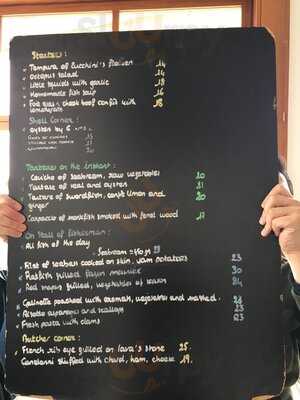 Starters :
Tempura of Zucchini's flower 14
Octopus salad 14
Little squids with garlic 18
Homemade fish soup 16
Foie gras + cheek beef confit with 18
lemongrass
Shell Corner :
oyster by 6
13
15
20
Tartares on the instant :
Ceviche of seabream, raw vegetables 20
Tartare of veal and oyster 21
Tartare of swordfish, confit lemon and 20
ginger
Carpaccio of monkfish smoked with fennel wood 17
On Stall of fisherman :
All fish of the day
Seabream
Filet of seabass cooked on skin, yam potatoes 23
grilled 30
Red grilled, vegetables of season 24
Galinette poached with aromats, vegetables and 26
Risotto asparagus and scallops 23
Fresh pasta with clams 23
Butcher corner :
French rib eye grilled on lava's stone 25.
Cannelloni stuffed with chard, ham, cheese 19.